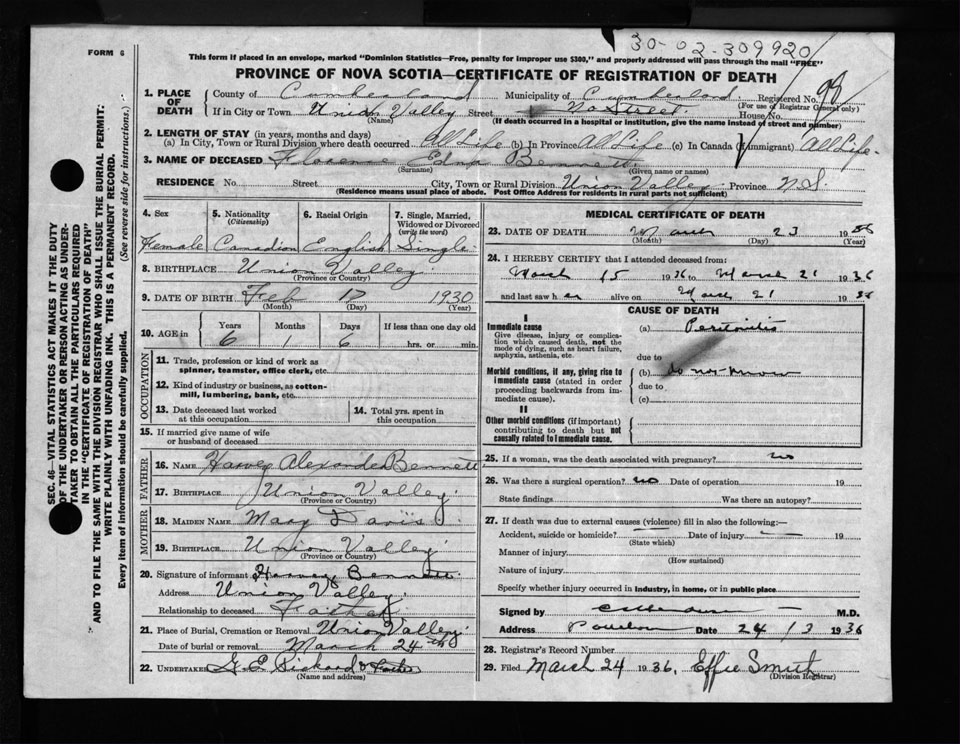 30-02-309920
FORM 6
This form if placed in an envelope, marked "Dominion Statistics—Free, penalty for improper use $300," and properly addressed will pass through the mail "FREE"
PROVINCE OF NOVA SCOTIA—CERTIFICATE OF REGISTRATION OF DEATH
1. PLACE OF DEATH
County of Cumberland Municipality of Cumberland Registered No. 98
(For use of Registrar General only)
If in City or Town Union Valley Street No Street House No.
(Name) (If death occurred in a hospital or institution, give the name instead of street and number)
2. LENGTH OF STAY (in years, months and days)
(a) In City, Town or Rural Division where death occurred All Life (b) In Province All Life (c) In Canada (if immigrant) All Life.
3. NAME OF DECEASED Florence Edna Bennett
(Surname) (Given name or names)
RESIDENCE No. Street City, Town or Rural Division Union Valley Province N.S.
(Residence means usual place of abode. Post Office Address for residents in rural parts not sufficient)
4. Sex 5. Nationality (Citizenship) 6. Racial Origin 7. Single, Married, Widowed or Divorced (write the word)
Female Canadian English Single
8. BIRTHPLACE Union Valley
(Province or Country)
9. DATE OF BIRTH Feb 17 1930
(Month) (Day) (Year)
10. AGE in Years Months Days If less than one day old
6 1 6 hrs. or min.
OCCUPATION
11. Trade, profession or kind of work as spinner, teamster, office clerk, etc.
12. Kind of industry or business, as cotton-mill, lumbering, bank, etc.
13. Date deceased last worked at this occupation
14. Total yrs. spent in this occupation
15. If married give name of wife or husband of deceased
FATHER
16. NAME Harvey Alexander Bennett
17. BIRTHPLACE Union Valley
(Province or Country)
MOTHER
18. MAIDEN NAME Mary Davis
19. BIRTHPLACE Union Valley
(Province or Country)
20. Signature of informant Harvey Bennett
Address Union Valley
Relationship to deceased Father
21. Place of Burial, Cremation or Removal Union Valley
Date of burial or removal March 24th
22. UNDERTAKER G. E. Rickard &
(Name and address)
MEDICAL CERTIFICATE OF DEATH
23. DATE OF DEATH March 23 1936
(Month) (Day) (Year)
24. I HEREBY CERTIFY that I attended deceased from:
March 15 1936 to March 21 1936
and last saw her alive on March 21 1936
CAUSE OF DEATH
I
Immediate cause
Give disease, injury or complication which caused death, not the mode of dying, such as heart failure, asphyxia, asthenia, etc.
(a) Peritonitis
due to
Morbid conditions, if any, giving rise to immediate cause (stated in order proceeding backwards from immediate cause).
(b) do not know
due to
(c)
II
Other morbid conditions (if important) contributing to death but not causally related to immediate cause.
25. If a woman, was the death associated with pregnancy? no
26. Was there a surgical operation? no Date of operation 19
State findings Was there an autopsy?
27. If death was due to external causes (violence) fill in also the following:—
Accident, suicide or homicide? Date of injury 19
(State which)
Manner of injury
(How sustained)
Nature of injury
Specify whether injury occurred in industry, in home, or in public place
Signed by M.D.
Address Date 24/3 1936
28. Registrar's Record Number
29. Filed March 24 1936, Effie Smith
(Division Registrar)
SEC. 46—VITAL STATISTICS ACT MAKES IT THE DUTY
OF THE UNDERTAKER OR PERSON ACTING AS UNDER-
TAKER TO OBTAIN ALL THE PARTICULARS REQUIRED
IN THE "CERTIFICATE OF REGISTRATION OF DEATH"
AND TO FILE THE SAME WITH THE DIVISION REGISTRAR WHO SHALL ISSUE THE BURIAL PERMIT.
WRITE PLAINLY WITH UNFADING INK. THIS IS A PERMANENT RECORD.
Every item of information should be carefully supplied. (See reverse side for instructions.)